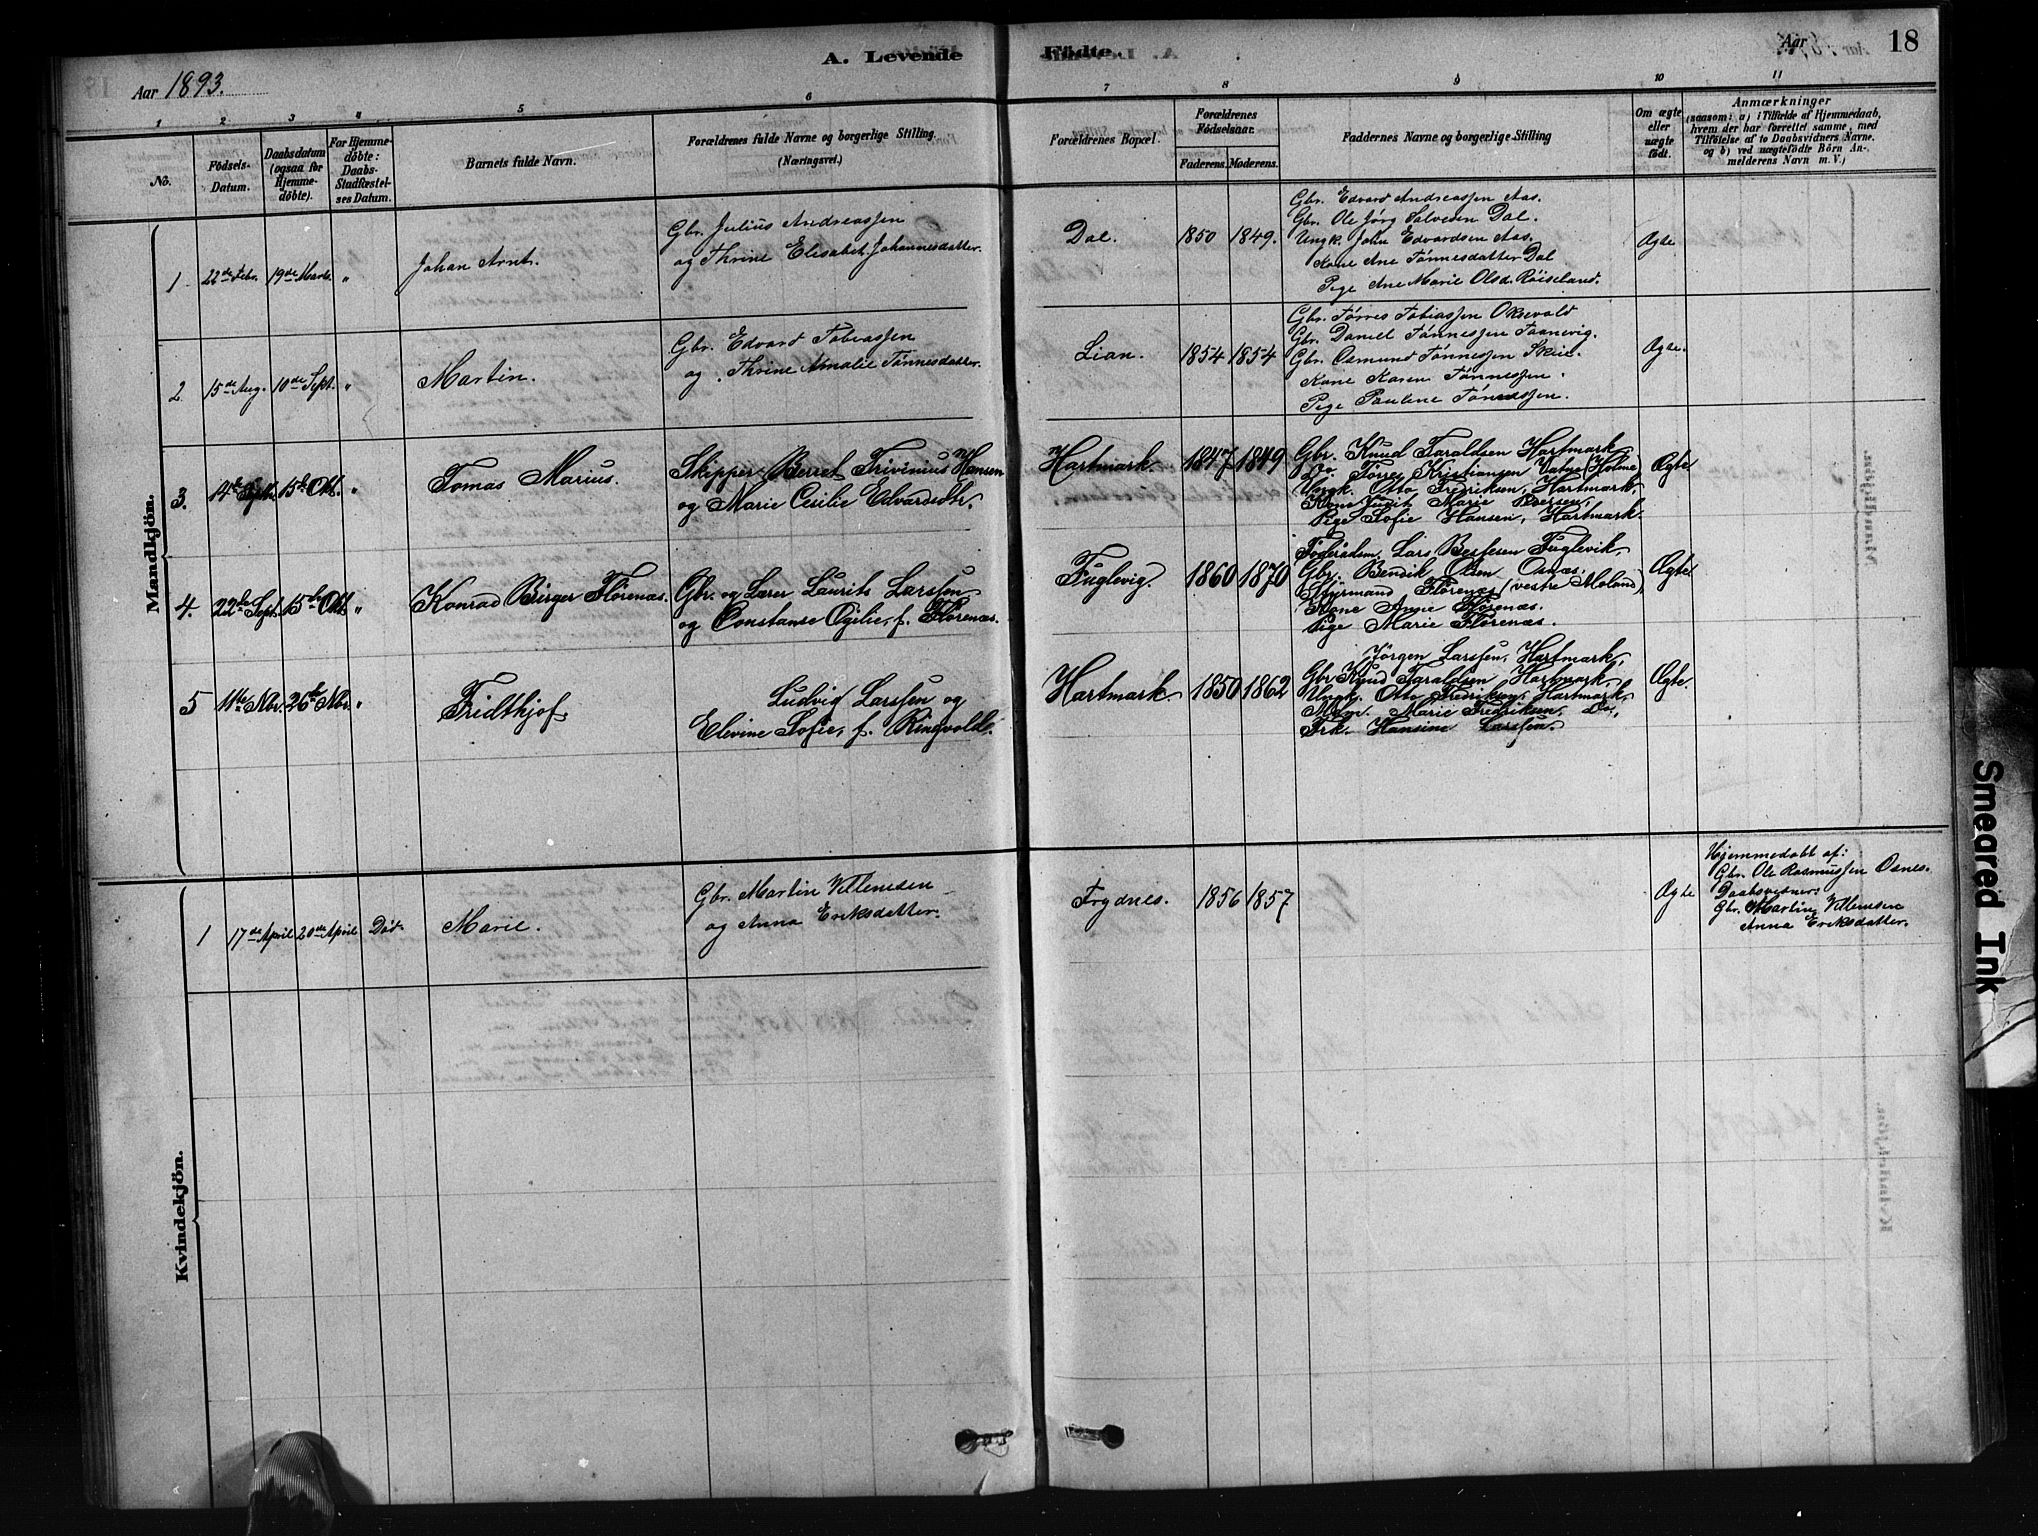 A. Levende Födte.
Aar 1893.
Aar
18
1 2 3 4 5 6 7 8 9 10 11
No.
Födsels-Datum.
Daabsdatum (ogsaa for Hjemme-döbte).
For Hjemme-döbte: Daabs-Stadfæstel-ses Datum.
Barnets fulde Navn.
Forældrenes fulde Navne og borgerlige Stilling. (Næringsvei.)
Forældrenes Bopæl.
Forældrenes Födselsaar.
Faderens. Moderens.
Faddernes Navne og borgerlige Stilling
Om ægte eller uægte födt.
Anmærkninger
(saasom: a) i Tilfælde af Hjemmedaab, hvem der har forrettet samme, med Tilföielse af to Daabsvidners Navne. og b) ved uægtefödte Börn An-melderens Navn m. V.)
Mandkjön.
1 22de Febr. 19de Marts "
Johan Arnt.
Gbr. Julius Andreassen
og Thrine Elisabet Johannesdatter.
Dal. 1850 1849.
Gbr. Edvard Andreassen Aas.
Gbr. Ole Jörg Salvesen Dal.
Ungk. John Edvardsen Aas.
Kone Ane Tönnesdatter Dal
Pige Ane Marie Olsd. Röiseland.
Ægte
2 15de Aug. 10de Sept. "
Martin.
Gbr. Edvard Tobiassen
og Thrine Amalie Tönnesdatter
Lian. 1854 1854
Gbr. Törres Tobiassen Oksevald
Gbr. Daniel Tönnessen Taanevig.
Gbr. Osmund Tönnessen Skeie.
Kone Karen Tönnessen.
Pige Pauline Tönnessen.
Ægte.
3. 14de Sept. 15de Okt. "
Tomas Marius.
Skipper Berret Trivinius Hansen
og Marie Cesilie Edvardsdtr.
Hartmark. 1847 1849
Gbr. Knud Taraldsen Hartmark
Do. Törres Kristiansen Vatne (Holme)
Ungk. Otto Fredriksen, Hartmark,
Kone Marie
Pige Sofie Hansen, Hartmark.
Ægte
4. 22de Sept. 15de Okt. "
Konrad Birger Florenæs.
Gbr. og Lærer Laurits Larssen
og Constanse Ogelie, f. Florenæs.
Fuglevig. 1860 1870
Föderådsm. Lars Bentsen Fuglevik
Gbr. Bendik Olsen Osnæs.
Styrmand Florenæs (vestre Moland)
Kone Anne Florenæs.
Pige Marie Florenæs.
Ægte
5 11te Nbr. 26de Nbr. "
Fridthjof
Ludvig Larssen og
Elevine Sofie, f. Ringvold.
Hartmark 1850 1862
Jörgen Larssen, Hartmark,
Gbr Knud Taraldsen Hartmark
Ungk. Otto Fredriksen, Hartmark
Mdm. Marie Fredriksen, Do,
Frk. Hansine Larssen.
Ægte.
Kvindekjön.
1 17de April 20de April Död.
Marie.
Gbr. Martin Villemsen
og Anna Eriksdatter.
Frydnes. 1856 1857
Ægte
Hjemmedøbt af:
Gbr. Ole Rasmussen Osnes.
Daabsvidner:
Gbr. Martin Villemsen
Anna Eriksdatter.
Smeared Ink